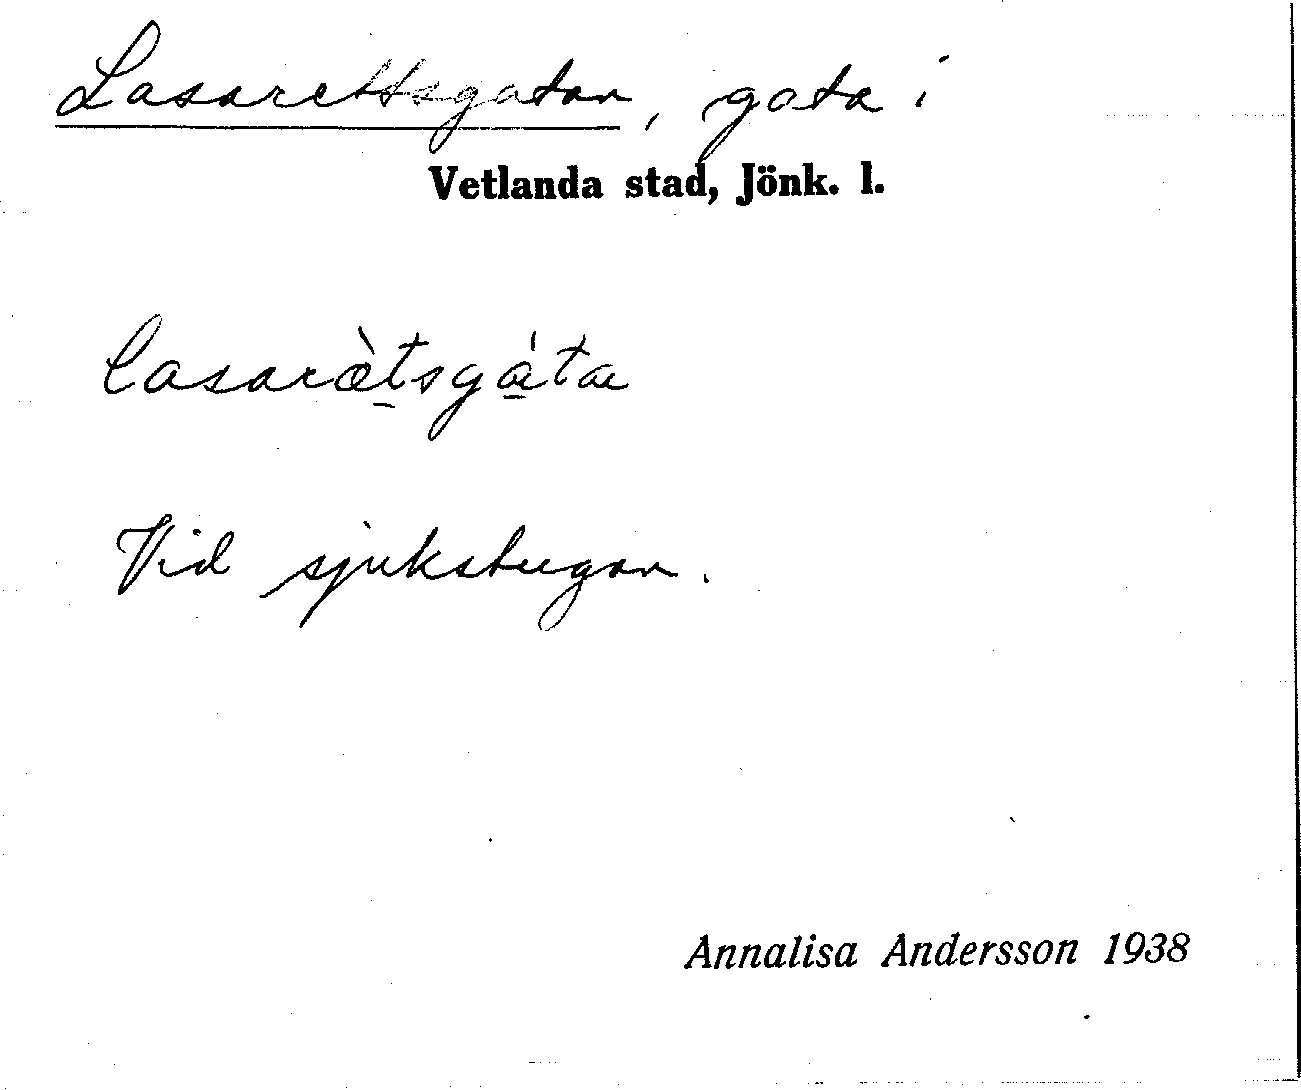 Lasarettsgatan, gata i
Vetlanda stad, Jönk. l.
lasaræ̀t̠sgá̠ta
Vid sjukstugan.
Annalisa Andersson 1938